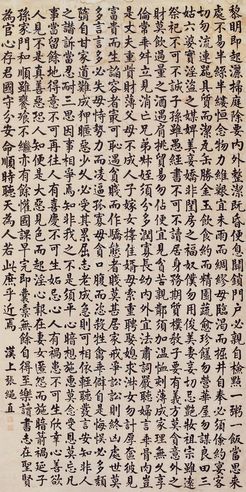 黎明即起灑掃庭除要內外整潔既昏便息關鎖門戶必親自檢點一粥一飯當思來
處不易半絲半縷恒念物力維艱宜未雨而綢繆毋臨渴而掘井自奉必須儉約宴客
切勿流連器具質而潔瓦缶勝金玉飲食約而精園蔬愈珍饈勿營華屋勿謀良田三
姑六婆實淫盜之媒婢美妾嬌非閨房之福奴僕勿用俊美妻妾切忌艷妝祖宗雖遠
祭祀不可不誠子孫雖愚經書不可不讀居身務期質樸教子要有義方莫貪意外之
財莫飲過量之酒與肩挑貿易勿佔便宜見貧苦親鄰須加溫恤刻薄成家理無久享
倫常乖舛立見消亡兄弟叔姪須分多潤寡長幼內外宜法肅詞嚴聽婦言乖骨肉豈
是丈夫重貲財薄父母不成人子嫁女擇佳婿毋索重聘娶媳求淑女勿計厚奩見
富貴而生諂容者最可恥遇貧賤而作驕態者賤莫甚居家戒爭訟訟則終凶處世戒
多言言多必失毋恃勢力而凌逼孤寡毋貪口腹而恣殺牲禽乖僻自是悔誤必多頹
惰自甘家道難成狎暱惡少久必受其累屈志老成急則可相依輕聽發言安知非人
之譖訴當忍耐三思因事相爭焉知非我之不是須平心暗想施惠無念受恩莫忘凡
事當留餘地得意不宜再往人有喜慶不可生妒忌心人有禍患不可生欣幸心善欲
人見不是真善惡恐人知便是大惡見色而起淫心報在妻女匿怨而用暗箭禍延子
孫家門和順雖饔飧不繼亦有餘歡國課早完即囊橐無餘自得至樂讀書志在聖賢
為官心存君國守分安命順時聽天為人若此庶乎近焉 漢上張繩直